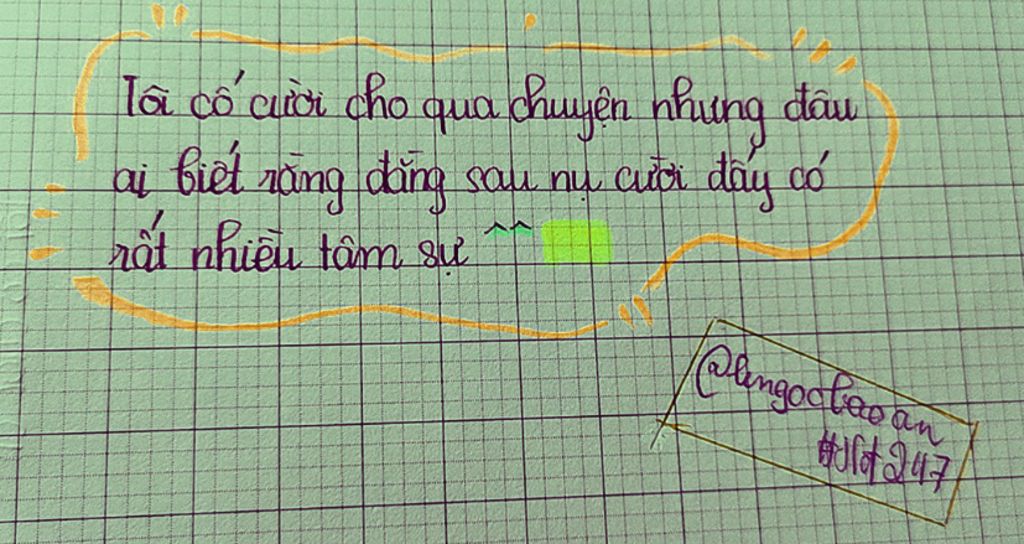 Tôi cố cười cho qua chuyện nhưng đâu
ai biết rằng đằng sau nụ cười đấy có
rất nhiều tâm sự ^^
@lengocbaoan